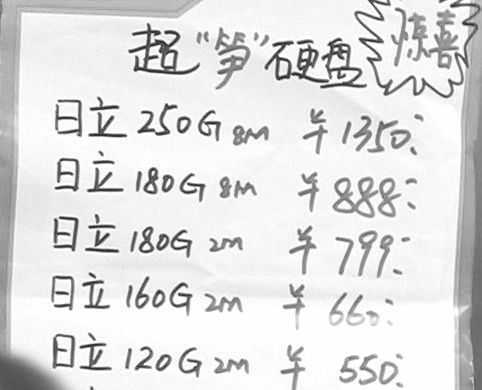 惊喜
超"笋"硬盘
日立 250G 8M ¥1350:
日立 180G 8M ¥888:
日立 180G 2M ¥799:
日立 160G 2M ¥660:
日立 120G 2M ¥550: